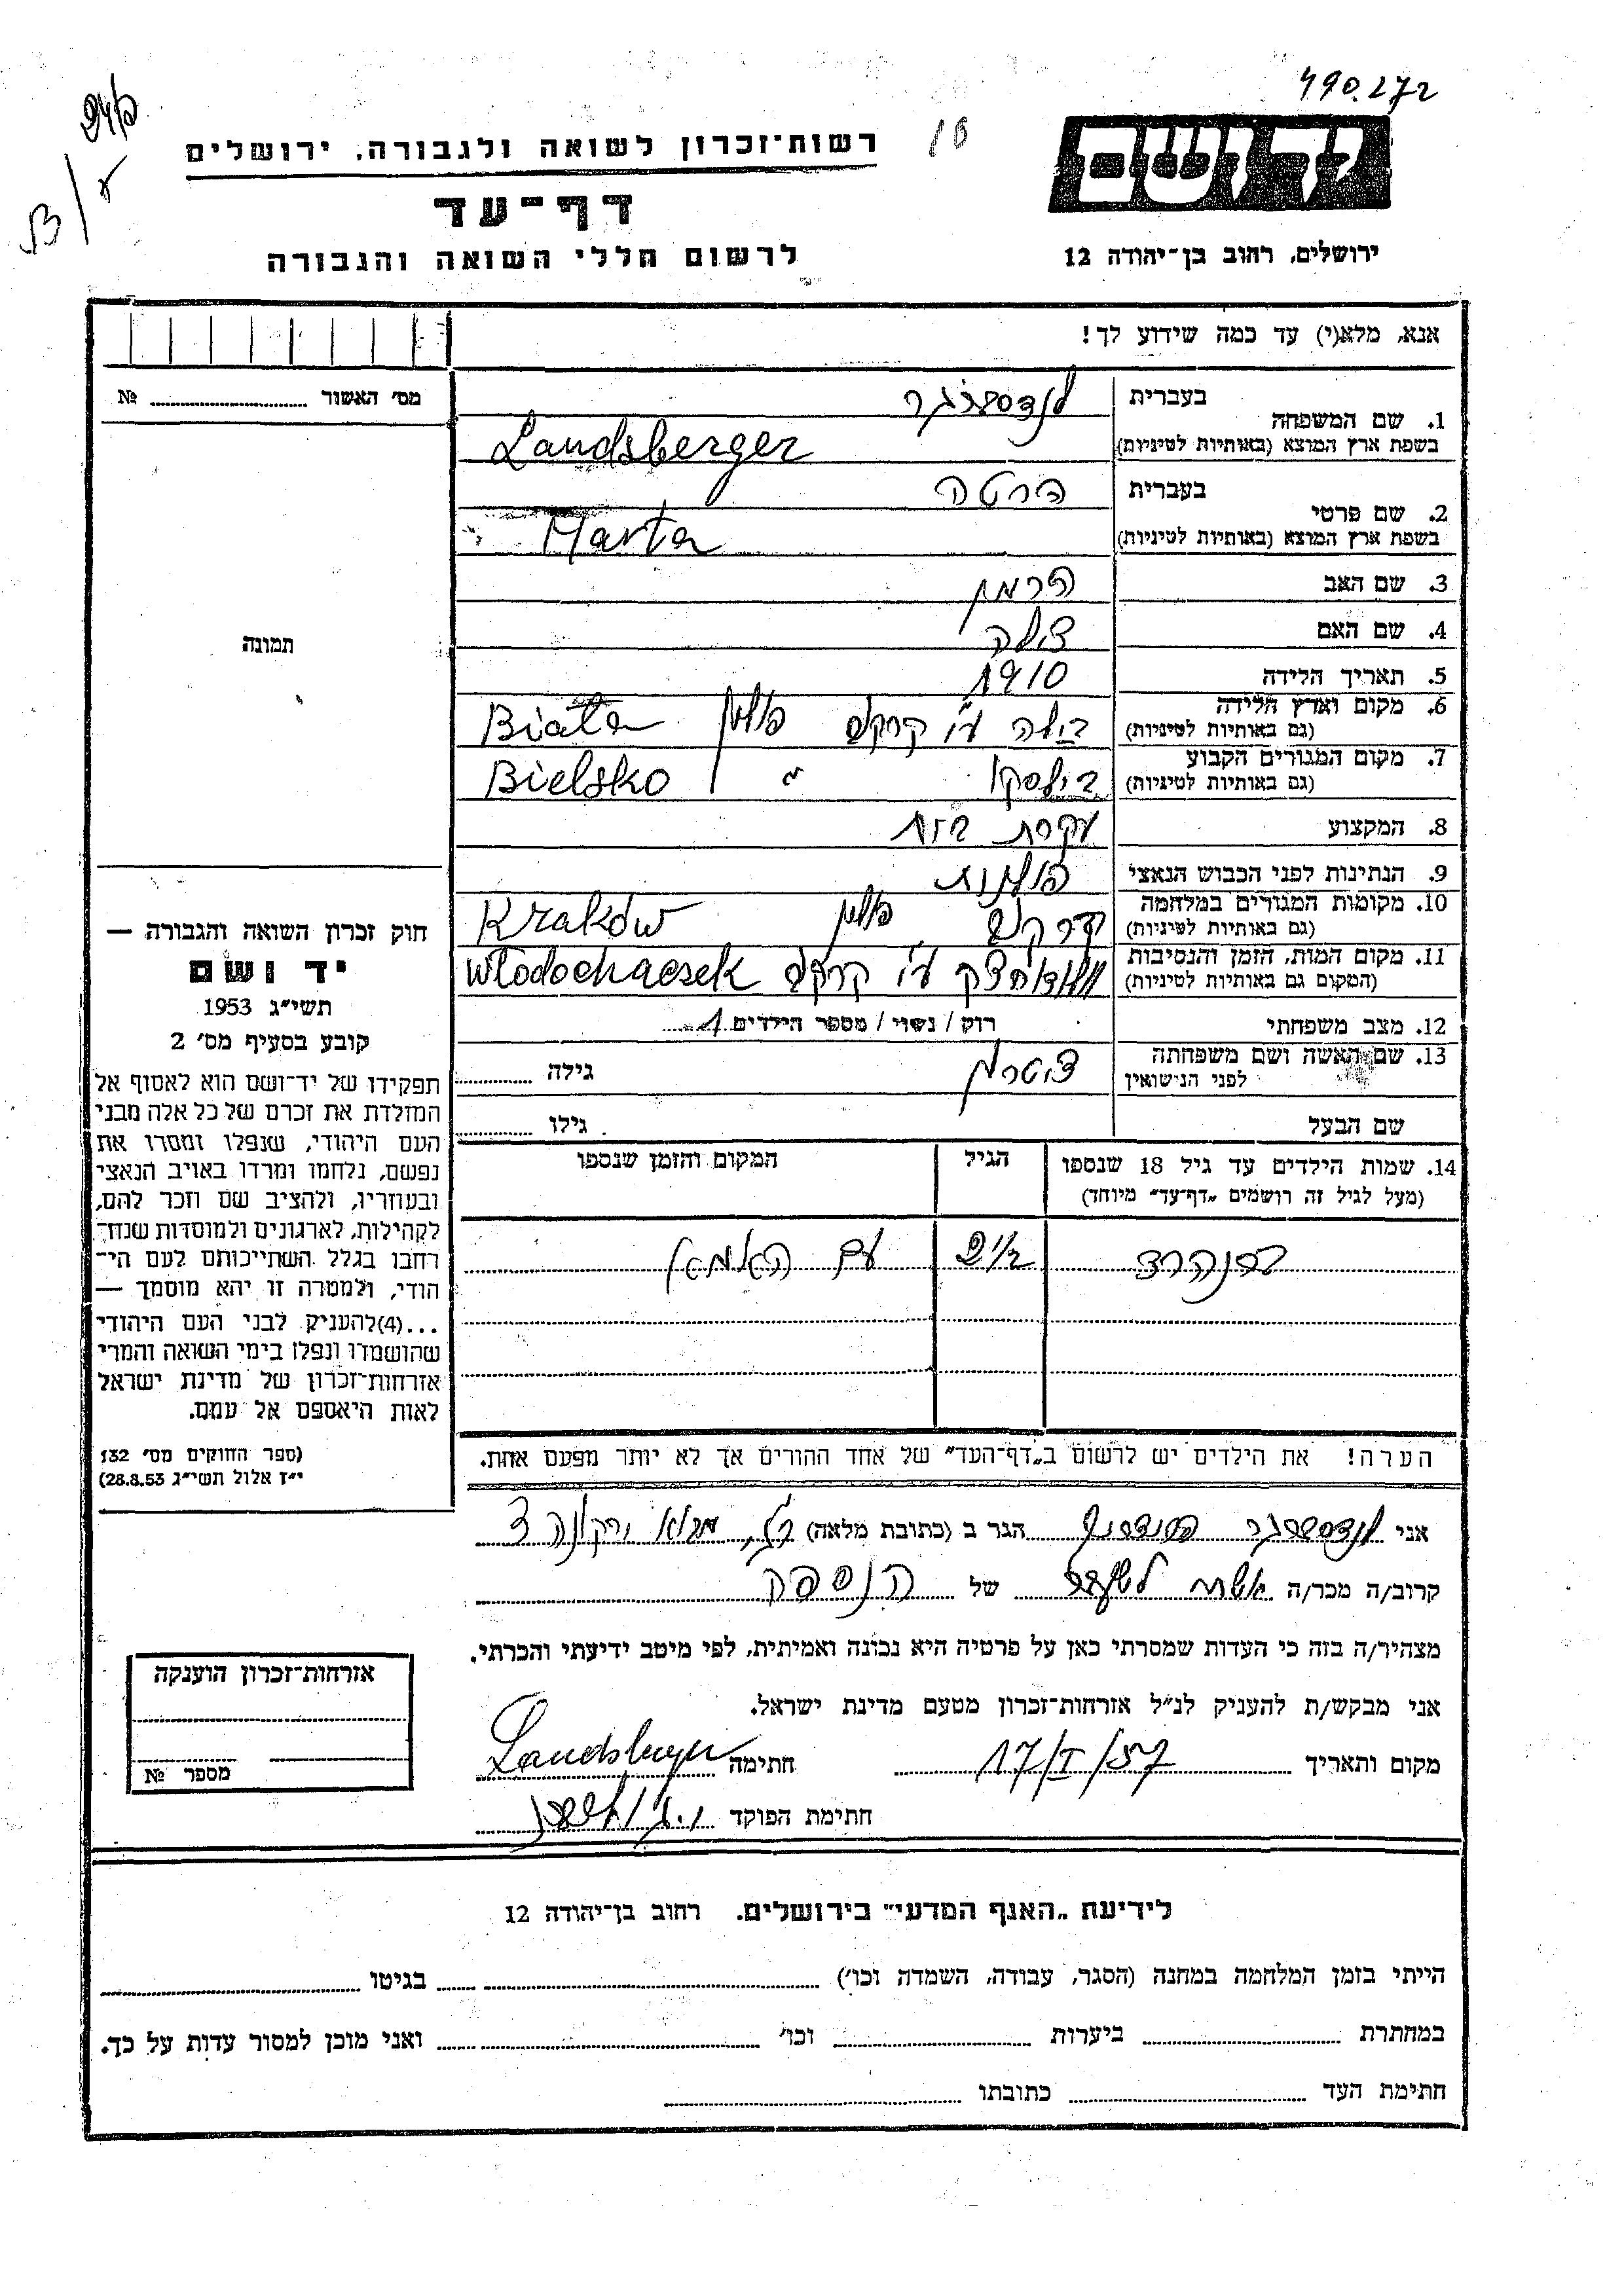 490.272
יד ושם
רשות־זכרון לשואה ולגבורה, ירושלים
דף־עד
לרשום חללי השואה והגבורה
ירושלים, רחוב בן־יהודה 12
אנא, מלא(י) עד כמה שידוע לך!
מס' האשור № 
1. שם המשפחה
בעברית לנדסברגר
בשפת ארץ המוצא (באותיות לטיניות) Landsberger
2. שם פרטי
בעברית מרטה
בשפת ארץ המוצא (באותיות לטיניות) Marta
3. שם האב הרמן
4. שם האם
5. תאריך הלידה 1910
6. מקום וארץ הלידה
(גם באותיות לטיניות) בילה ע"י קרקב פולין Biała
7. מקום המגורים הקבוע
(גם באותיות לטיניות) בילסקו " Bielsko
8. המקצוע עקרת בית
9. הנתינות לפני הכבוש הנאצי פולנית
10. מקומות המגורים במלחמה
(גם באותיות לטיניות) קרקב פולין Kraków
11. מקום המות, הזמן והנסיבות
(המקום גם באותיות לטיניות) ע"י קרקב Włodochaczek
12. מצב משפחתי רוק / נשוי / מספר הילדים 1
13. שם האשה ושם משפחתה
לפני הנישואין גילה
שם הבעל גילו
תמונה
חוק זכרון השואה והגבורה —
יד ושם
תשי״ג 1953
קובע בסעיף מס' 2
תפקידו של יד־ושם הוא לאסוף אל
המולדת את זכרם של כל אלה מבני
העם היהודי, שנפלו ומסרו את
נפשם, נלחמו ומרדו באויב הנאצי
ובעוזריו, ולהציב שם וזכר להם,
לקהילות, לארגונים ולמוסדות שנח־
רחבו בגלל השתייכותם לעם הי־
הודי, ולמטרה זו יהא מוסמך —
...(4)להעניק לבני העם היהודי
שהושמדו ונפלו בימי השואה והמרי
אזרחות־זכרון של מדינת ישראל
לאות היאספם אל עמם.
(ספר החוקים מס' 132
י״ז אלול תשי״ג 28.8.53)
14. שמות הילדים עד גיל 18 שנספו
(מעל לגיל זה רושמים „דף־עד״ מיוחד)
הגיל
המקום והזמן שנספו
ברנהרד
עם האמא
הערה! את הילדים יש לרשום ב„דף־העד״ של אחד ההורים אך לא יותר מפעם אחת.
אני לנדסברגר הגר ב (כתובת מלאה)
קרוב/ה מכר/ה של הנספה
מצהיר/ה בזה כי העדות שמסרתי כאן על פרטיה היא נכונה ואמיתית, לפי מיטב ידיעתי והכרתי.
אני מבקש/ת להעניק לנ״ל אזרחות־זכרון מטעם מדינת ישראל.
מקום ותאריך 17/I/57 חתימה Landsberger
חתימת הפוקד
אזרחות־זכרון הוענקה
מספר №
לידיעת „האגף המדעי״ בירושלים, רחוב בן־יהודה 12
הייתי בזמן המלחמה במחנה (הסגר, עבודה, השמדה וכו') בגיטו
במחתרת ביערות וכו' ואני מוכן למסור עדות על כך.
חתימת העד כתובתו